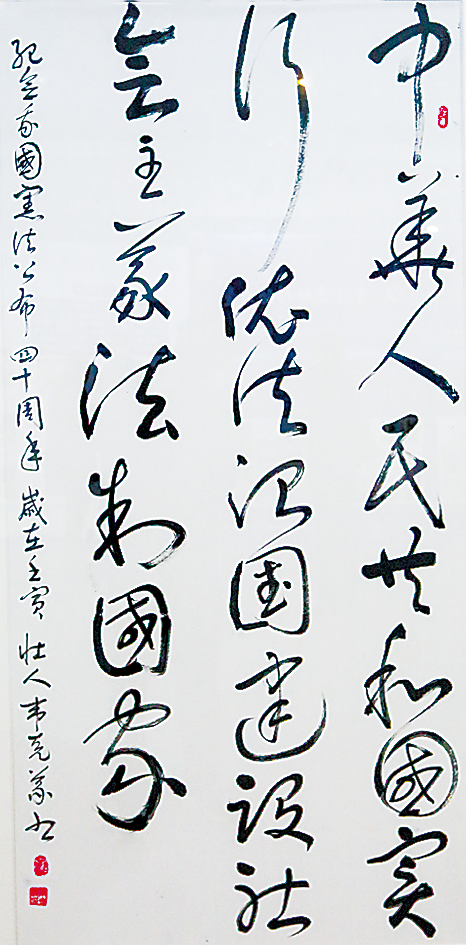 中華人民共和國实
行依法治國建設社
会主義法制國家
纪念我國憲法公布四十周年 歲在壬寅 壮人韦克義书